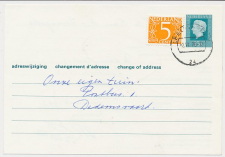 NEDERLAND
5
adreswijziging changement d'adresse change of address
Onze eigen tuin
Postbus 1
Dedemsvaart